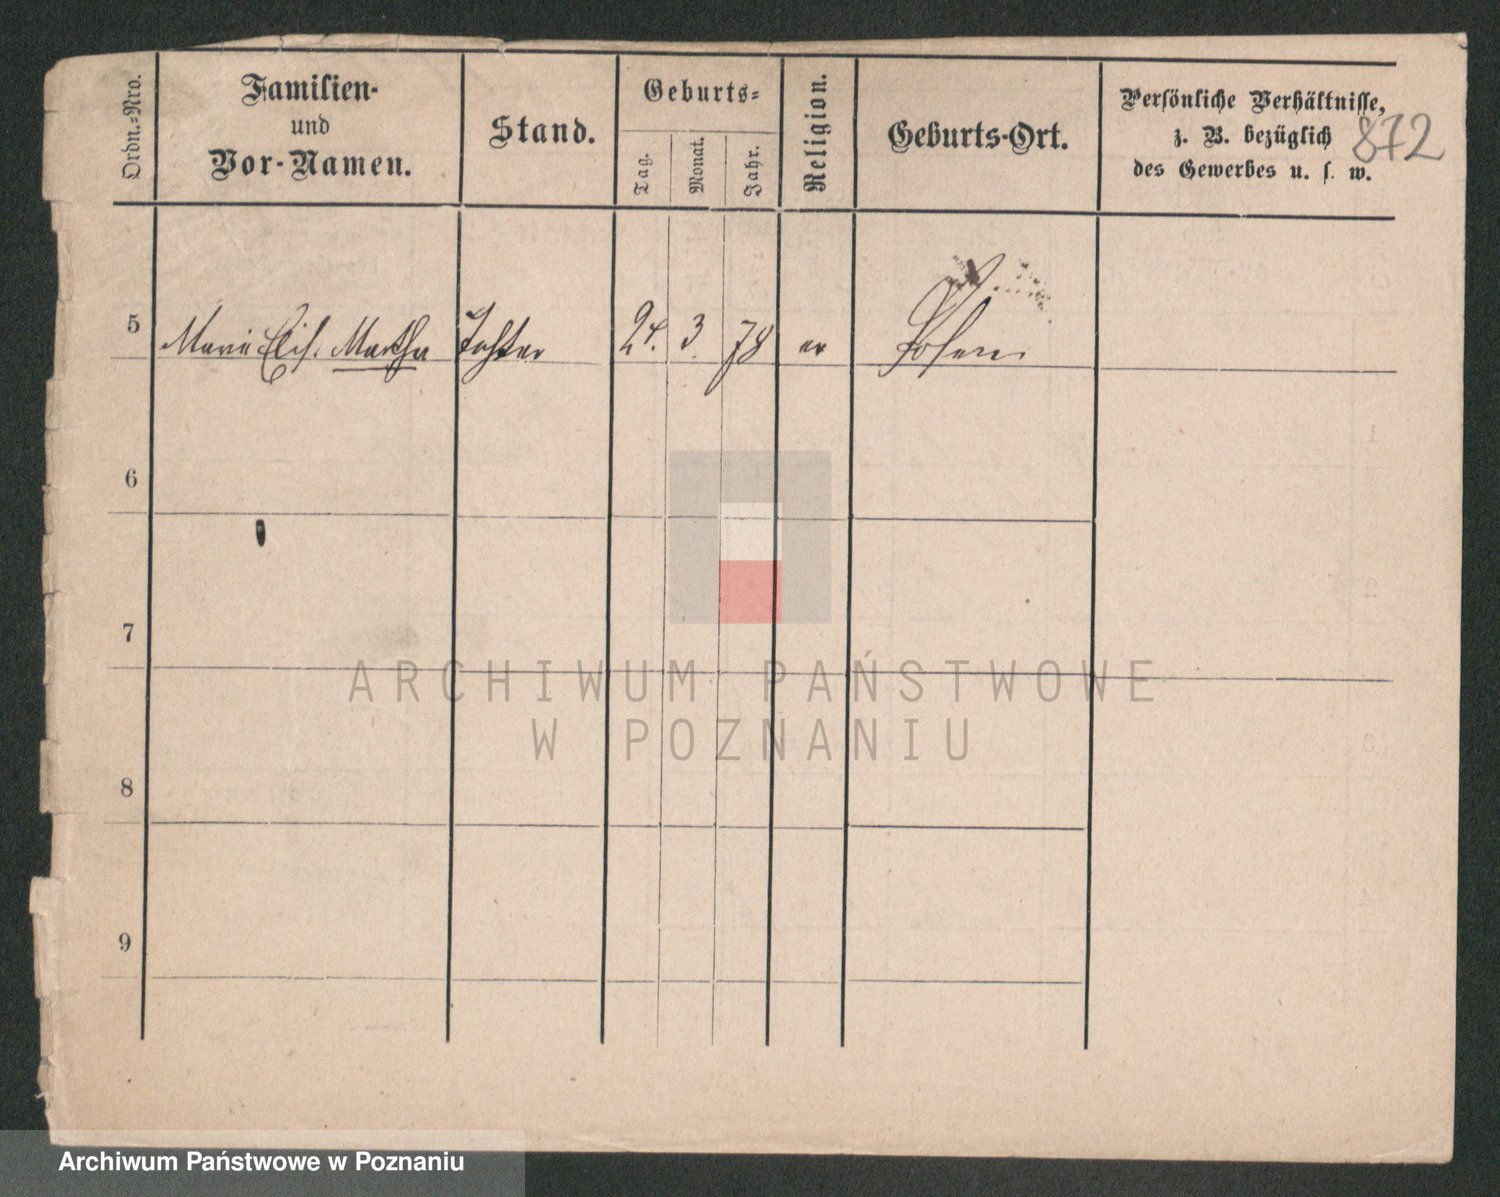 Ordn.-Nro.
Familien-
und
Vor-Namen.
Stand.
Geburts-
Tag.
Monat.
Jahr.
Religion.
Geburts-Ort.
Persönliche Verhältnisse,
z. B. bezüglich
des Gewerbes u. s. w.
872
5 Marie Elis. Martha Tochter 24. 3. 78 ev Posen
6
7
8
9
ARCHIWUM PAŃSTWOWE
W POZNANIU
Archiwum Państwowe w Poznaniu